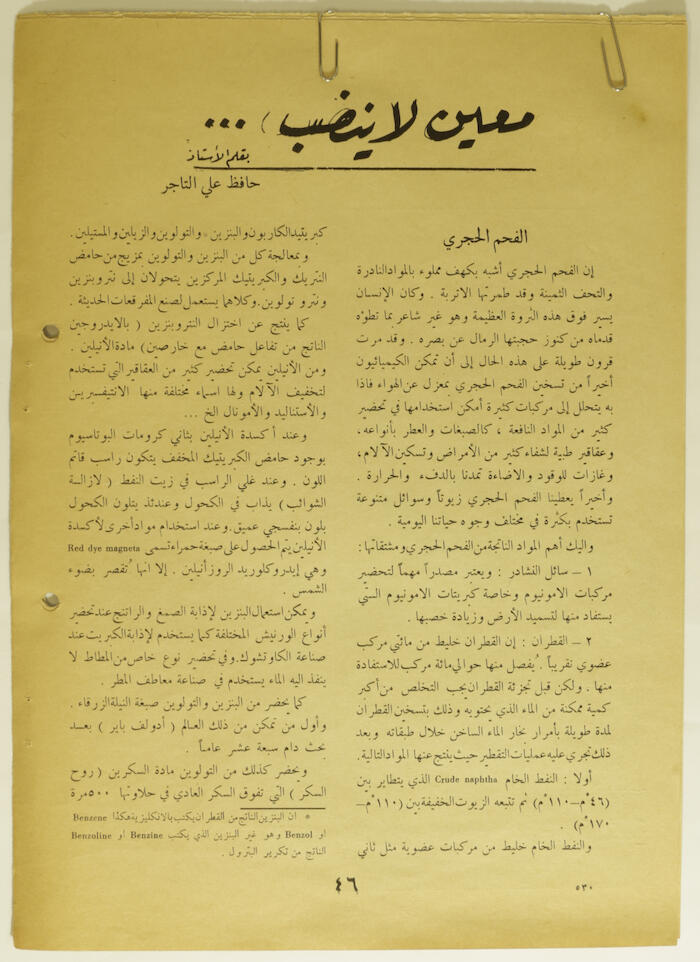 معين لا ينضب ...
بقلم الأستاذ
حافظ علي التاجر
الفحم الحجري
إن الفحم الحجري أشبه بكهف مملوء بالمواد النادرة
والتحف الثمينة وقد طمرتها الاتربة . وكان الإنسان
يسير فوق هذه الثروة العظيمة وهو غير شاعر بما تطؤه
قدماه من كنوز حجبتها الرمال عن بصره . وقد مرت
قرون طويلة على هذه الحال إلى أن تمكن الكيميائيون
أخيراً من تسخين الفحم الحجري بمعزل عن الهواء فاذا
به يتحلل إلى مركبات كثيرة أمكن استخدامها في تحضير
كثير من المواد النافعة ، كالصبغات والعطر بأنواعه ،
وعقاقير طبية لشفاء كثير من الأمراض وتسكين الآلام ،
وغازات للوقود والاضاءة تمدنا بالدفء والحرارة .
وأخيراً يعطينا الفحم الحجري زيوتاً وسوائل متنوعة
تستخدم بكثرة في مختلف وجوه حياتنا اليومية .
واليك أهم المواد الناتجة من الفحم الحجري ومشتقاتها :
١ – سائل النشادر : ويعتبر مصدراً مهماً لتحضير
مركبات الامونيوم وخاصة كبريتات الامونيوم التي
يستفاد منها لتسميد الأرض وزيادة خصبها .
٢ – القطران : إن القطران خليط من مائتي مركب
عضوي تقريباً . يُفصل منها حوالي مائة مركب للاستفادة
منها . ولكن قبل تجزئة القطران يجب التخلص من أكبر
كمية ممكنة من الماء الذي يحتويه وذلك بتسخين القطران
لمدة طويلة بأمرار بخار الماء الساخن خلال طبقاته وبعد
ذلك تجري عليه عمليات التقطير حيث ينتج عنها المواد التالية .
أولا : النفط الخام Crude naphtha الذي يتطاير بين
(٤٦°م–١١٠°م) ثم تتبعه الزيوت الخفيفة بين (١١٠°م–
١٧٠°م) .
والنفط الخام خليط من مركبات عضوية مثل ثاني
كبريتيد الكاربون والبنزين * والتولوين والزيلين والمستيلين .
وبمعالجة كل من البنزين والتولوين بمزيج من حامض
النتريك والكبريتيك المركزين يتحولان إلى نتروبنزين
ونترو تولوين . وكلاهما يستعمل لصنع المفرقعات الحديثة .
كما ينتج عن اختزال النتروبنزين ( بالايدروجين
الناتج من تفاعل حامض مع خارصين) مادة الأنيلين .
ومن الأنيلين يمكن تحضير كثير من العقاقير التي تستخدم
لتخفيف الآلام ولها اسماء مختلفة منها الانتيفبرين
والأستناليد والأمونال الخ ...
وعند أكسدة الأنيلين بثاني كرومات البوتاسيوم
بوجود حامض الكبريتيك المخفف يتكون راسب قاتم
اللون . وعند غلي الراسب في زيت النفط ( لازالة
الشوائب ) يذاب في الكحول وعندئذ يتلون الكحول
بلون بنفسجي عميق . وعند استخدام مواد أخرى لأكسدة
الأنيلين يتم الحصول على صبغة حمراء تسمى Red dye magneta
وهي إيدروكلوريد الروز أنيلين . إلا انها تُقصر بضوء
الشمس .
ويمكن استعمال البنزين لإذابة الصمغ والراتنج عند تحضير
أنواع الورنيش المختلفة كما يستخدم لإذابة الكبريت عند
صناعة الكاوتشوك . وفي تحضير نوع خاص من المطاط لا
ينفذ اليه الماء يستخدم في صناعة معاطف المطر .
كما يحضر من البنزين والتولوين صبغة النيلة الزرقاء .
وأول من تمكن من ذلك العالم ( أدولف باير ) بعد
بحث دام سبعة عشر عاماً .
ويحضر كذلك من التولوين مادة السكرين ( روح
السكر ) التي تفوق السكر العادي في حلاوتها ٥٠٠ مرة
* ان البنزين الناتج من القطران يكتب بالانكليزية هكذا Benzene
او Benzol وهو غير البنزين الذي يكتب Benzine او Benzoline
الناتج من تكرير البترول .
٤٦
٥٣٠